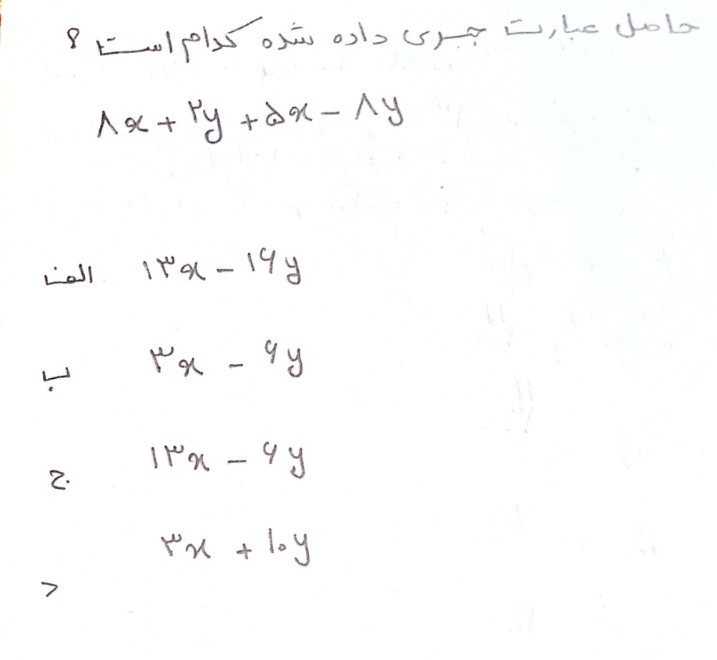 حاصل عبارت جبری داده شده کدام است ؟
۸x + ۲y + ۵x - ۸y
الف ۱۳x - ۱۶y
ب ۳x - ۶y
ج ۱۳x - ۶y
د ۳x + ۱۰y